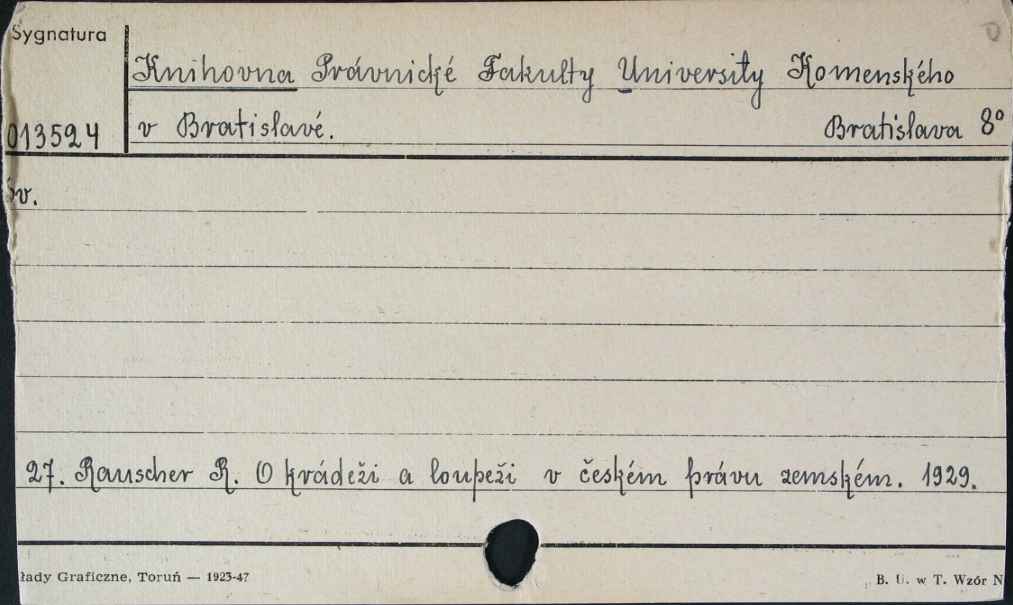 Sygnatura
Knihovna Právnické Fakulty University Komenského
013524
v Bratislavé. Bratislava 8°
27. Rauscher R. O krádeži a loupeži v českém právu zemském. 1929.
łady Graficzne, Toruń — 1923-47 B. U. w T. Wzór N